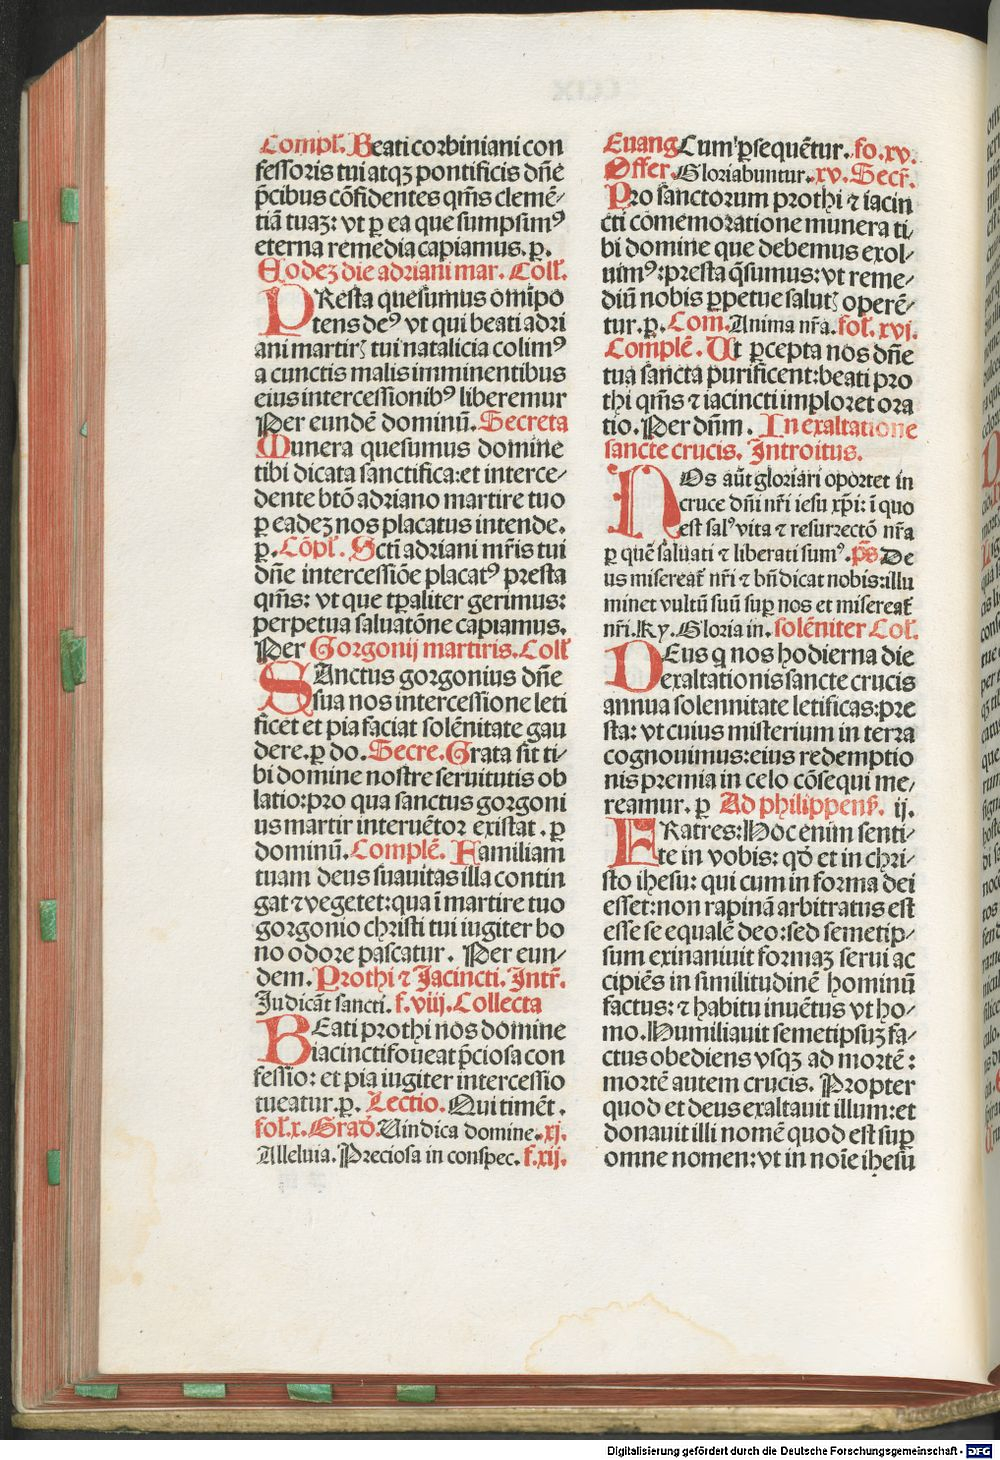 Compl̃. Beati corbiniani con
fessoris tui atqꝫ pontificis dñe
p̃cibus cõfidentes qm̃s clemẽ⸗
tiã tuaꝫ: vt ꝑ ea que sumpsimꝰ
eterna remedia capiamus. ꝑ.
Eodeꝫ die adriani mar. Coll̃.
PResta quesumus omĩpo
tens deꝰ vt qui beati adri
ani martirꝭ tui natalicia colimꝰ
a cunctis malis imminentibus
eius intercessionibꝰ liberemur
Per eundẽ dominũ. Secreta
Munera quesumus domine
tibi dicata sanctifica: et interce⸗
dente btõ adriano martire tuo
ꝑ eadeꝫ nos placatus intende.
ꝑ. Cõpl̃. Sctĩ adriani mr̃is tui
dñe intercessiõe placatꝰ presta
qm̃s: vt que tp̱aliter gerimus:
perpetua saluatõne capiamus.
Per Gorgonij martiris. Coll̃
SAnctus gorgonius dñe
sua nos intercessione leti
ficet et pia faciat solẽnitate gau
dere. ꝑ do. Secre. Grata sit ti⸗
bi domine nostre seruitutis ob
latio: pro qua sanctus gorgoni
us martir interuẽtor existat. ꝑ
dominũ. Complẽ. Familiam
tuam deus suauitas illa contin
gat ⁊ vegetet: qua ĩ martire tuo
gorgonio christi tui iugiter bo
no odore pascatur. Per eun⸗
dem. Prothi ⁊ Jacincti. Intr̃.
Judicãt sancti. f. viij. Collecta
BEati prothi nos domine
iacincti foueat p̃ciosa con
fessio: et pia iugiter intercessio
tueatur. ꝑ. Lectio. Qui timẽt.
fol̃. x. Grad̃. Vindica domine. xj.
Alleluia. Preciosa in conspec. f. xij.
Euang Cum ꝑsequẽtur. fo. xv.
Offer. Gloriabuntur. xv. Secr̃.
Pro sanctorum prothi ⁊ iacin
cti cõmemoratione munera ti⸗
bi domine que debemus exol⸗
uimꝰ: presta q̃sumus: vt reme⸗
diũ nobis ꝑpetue salutꝭ operẽ⸗
tur. ꝑ. Com. Anima nr̃a. fol̃. xvj.
Complẽ. Ut ꝑcepta nos dñe
tua sancta purificent: beati pro
thi qm̃s ⁊ iacincti imploret ora
tio. Per dñm. In exaltatione
sancte crucis. Introitus.
NOs aũt gloriari oportet in
cruce dñi nr̃i iesu xp̃i: ĩ quo
est salꝰ vita ⁊ resurrectõ nr̃a
ꝑ quẽ saluati ⁊ liberati sumꝰ. p̃s De
us misereat̃ nr̃i ⁊ bñdicat nobis: illu
minet vultũ suũ suꝑ nos et misereat̃
nr̃i. Ky. Gloria in. solẽniter Col̃.
DEus q nos hodierna die
exaltationis sancte crucis
annua solennitate letificas: pre
sta: vt cuius misterium in terra
cognouimus: eius redemptio
nis premia in celo cõsequi me⸗
reamur. ꝑ Ad philippens̃. ij.
FRatres: Hoc enim senti⸗
te in vobis: qd̃ et in chri⸗
sto ihesu: qui cum in forma dei
esset: non rapinã arbitratus est
esse se equalẽ deo: sed semetip⸗
sum exinaniuit formaꝫ serui ac
cipiẽs in similitudinẽ hominũ
factus: ⁊ habitu inuẽtus vt ho⸗
mo. Humiliauit semetipsuꝫ fa⸗
ctus obediens vsqꝫ ad mortẽ:
mortẽ autem crucis. Propter
quod et deus exaltauit illum: et
donauit illi nomẽ quod est suꝑ
omne nomen: vt in noĩe ihesũ
Digitalisierung gefördert durch die Deutsche Forschungsgemeinschaft - DFG